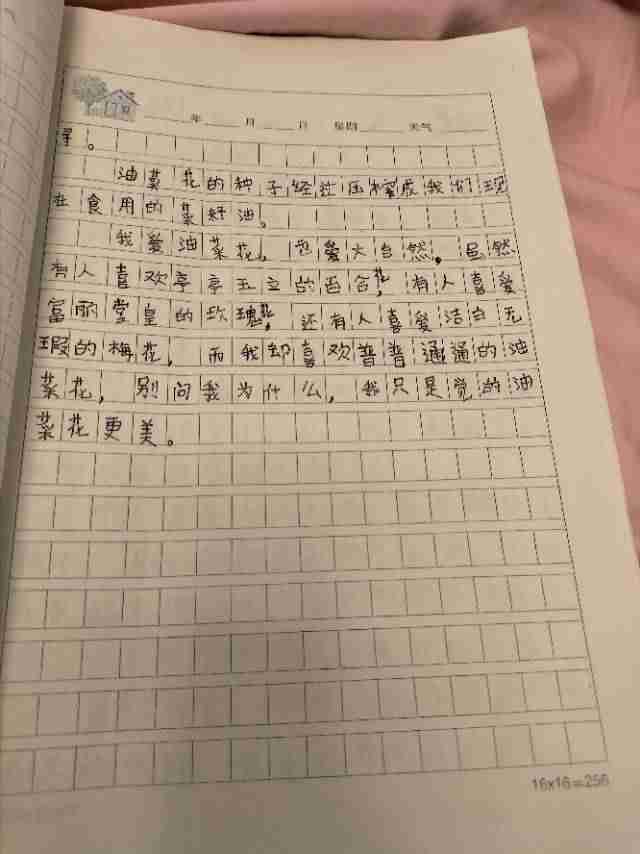 年 月 日 星期 天气
得。
油菜花的种子经过压榨成我们现
在食用的菜籽油。
我爱油菜花，也爱大自然。虽然
有人喜欢亭亭玉立的百合花，有人喜爱
富丽堂皇的玫瑰花，还有人喜爱洁白无
瑕的梅花，而我却喜欢普普通通的油
菜花，别问我为什么，我只是觉的油
菜花更美。
16×16=256